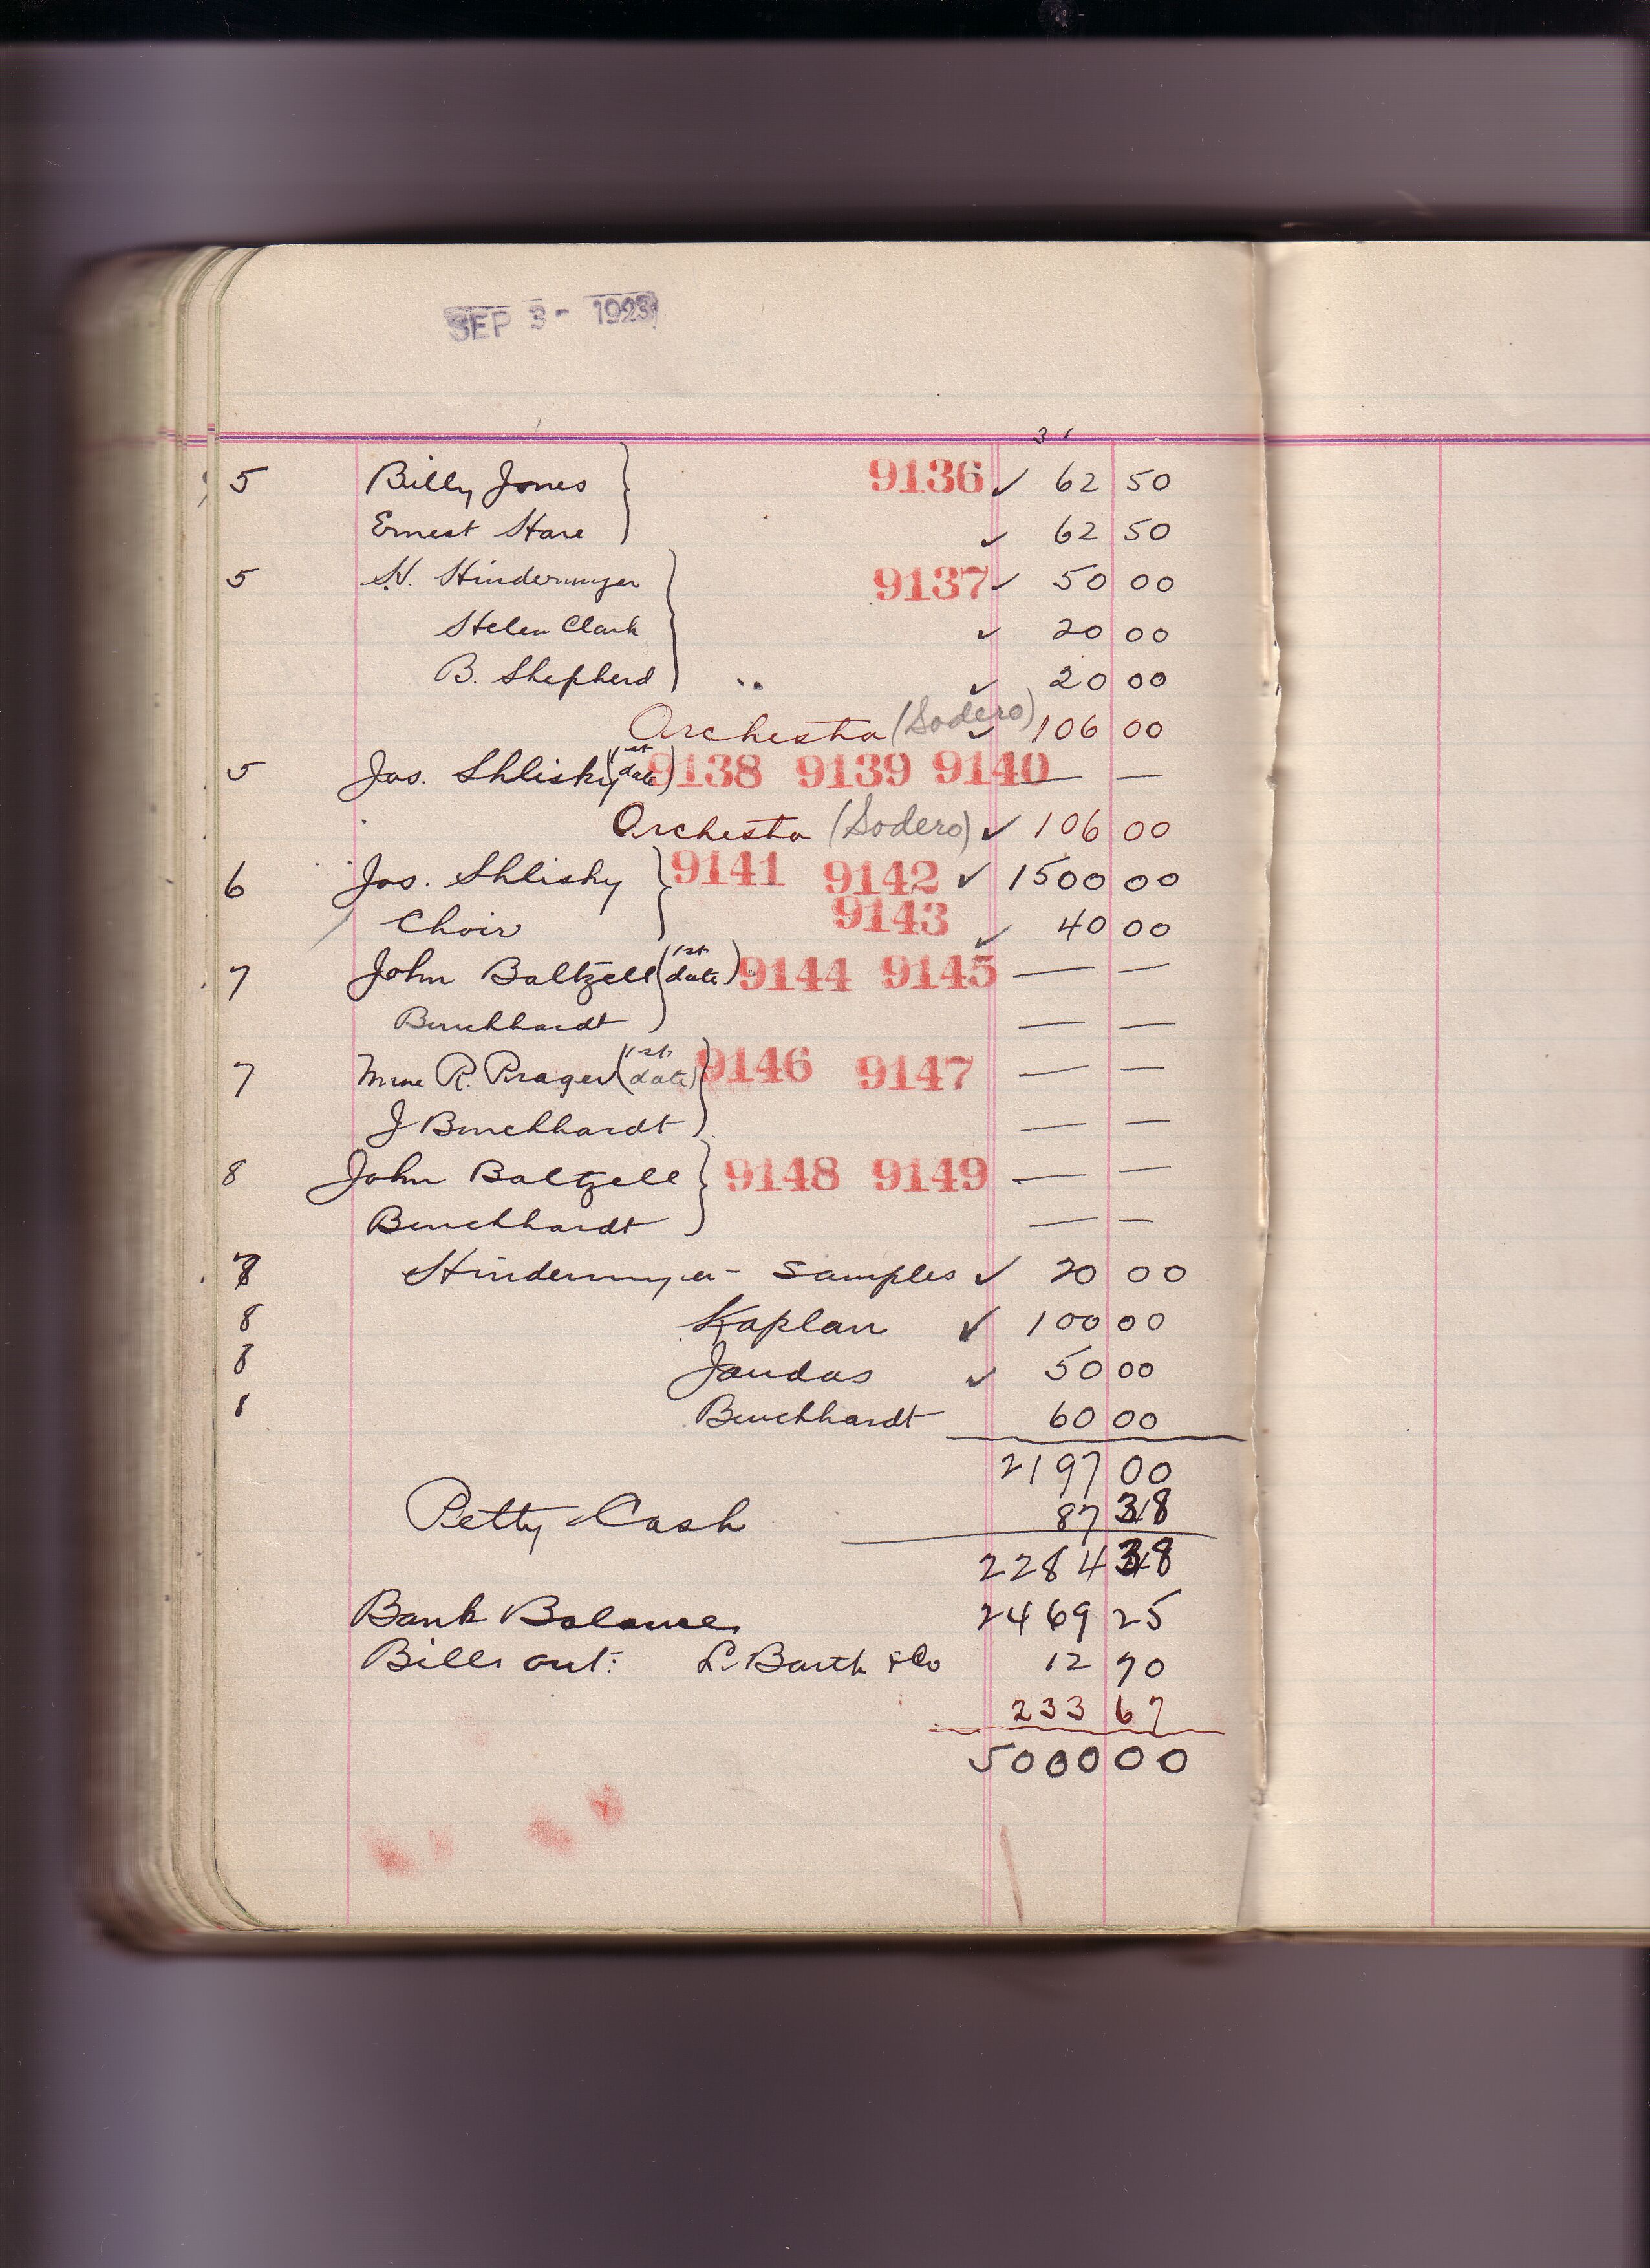 SEP 3 - 1923
5 Billy Jones 9136 ✓ 62 50
Ernest Hare ✓ 62 50
5 H. Hindermyer 9137 ✓ 50 00
Helen Clark ✓ 20 00
B. Shepherd ✓ 20 00
Orchestra (Sodero) ✓ 106 00
5 Jos. Shlisky (1st date) 9138 9139 9140 — —
Orchestra (Sodero) ✓ 106 00
6 Jos. Shlisky 9141 9142 ✓ 1500 00
Choir 9143 ✓ 40 00
7 John Baltzell (1st date) 9144 9145 — —
Burckhardt — —
7 Mme R. Prager (1st date) 9146 9147 — —
J Burckhardt — —
8 John Baltzell 9148 9149 — —
Burckhardt — —
8 Hindermyer - Samples ✓ 20 00
8 Kaplan ✓ 100 00
8 Jaudas ✓ 50 00
8 Burckhardt 60 00
2197 00
Petty Cash 87 38
2284 38
Bank Balance 2469 25
Bills out: L. Barth & Co 12 70
233 67
5000 00